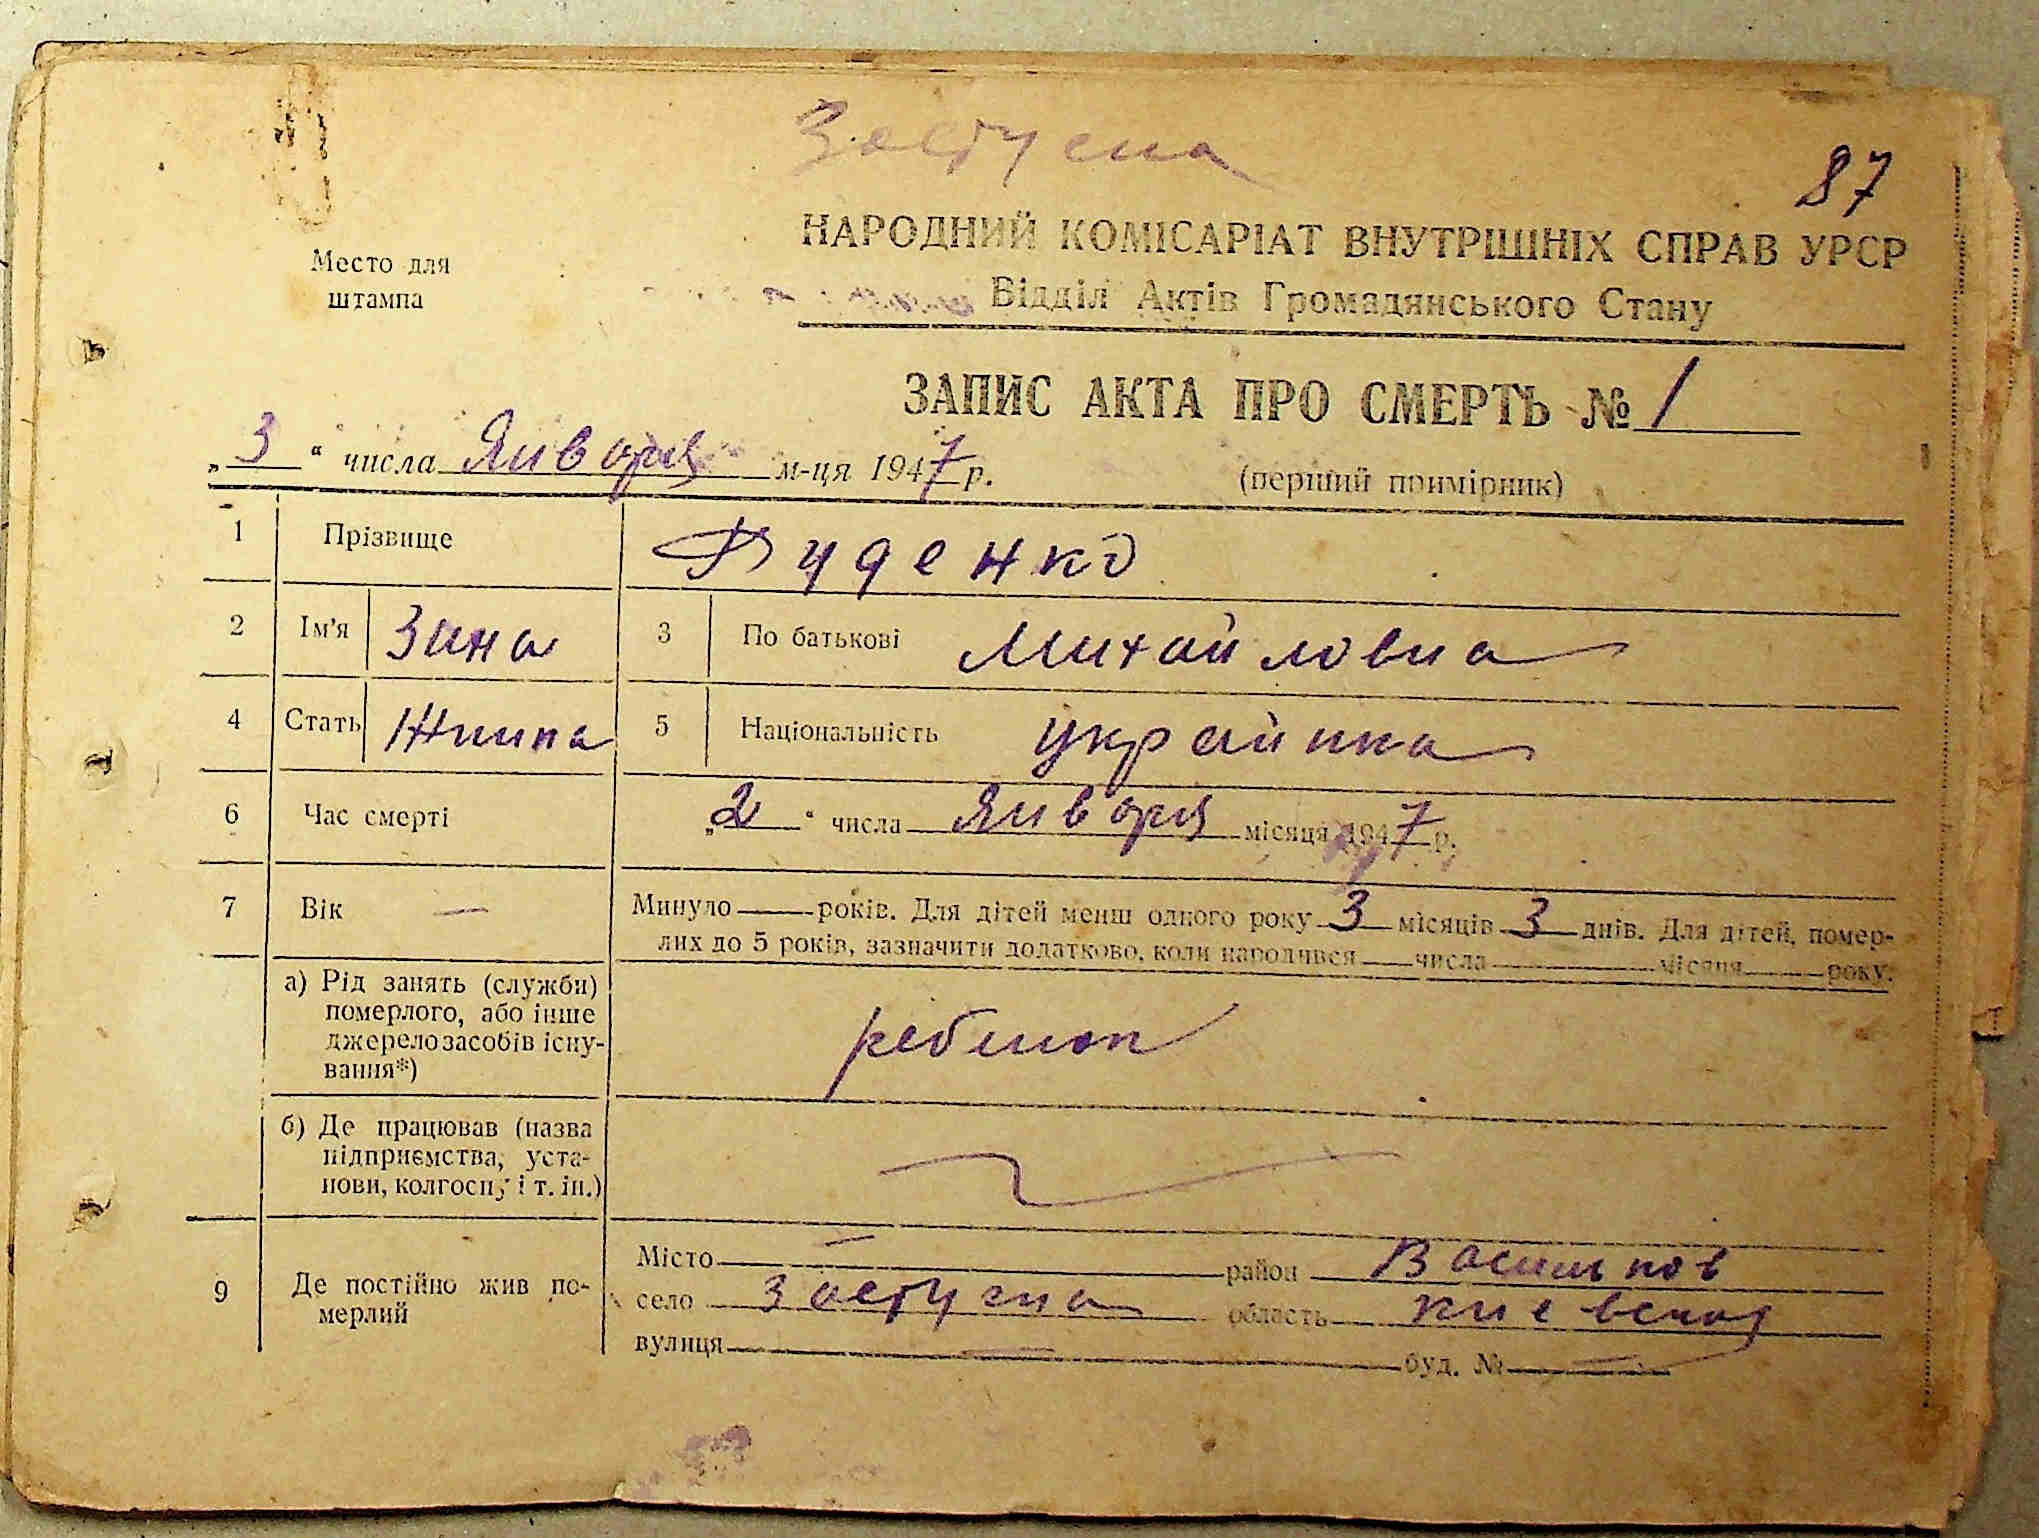 Застугна
87
НАРОДНИЙ КОМІСАРІАТ ВНУТРІШНІХ СПРАВ УРСР
Место для
штампа
Відділ Актів Громадянського Стану
ЗАПИС АКТА ПРО СМЕРТЬ № 1
„3“ числа Января м-ця 1947 р.
(перший примірник)
1 Прізвище Руденко
2 Ім'я Зина 3 По батькові Михайловна
4 Стать 5 Національність украинка
6 Час смерті „2“ числа Января місяця 1947 р.
7 Вік — Минуло — років. Для дітей менш одного року 3 місяців 3 днів. Для дітей, помер-
лих до 5 років, зазначити додатково, коли народився числа місяця року.
а) Рід занять (служби)
померлого, або інше
джерело засобів існу-
вання*)
ребенок
б) Де працював (назва
підприємства, уста-
нови, колгоспу і т. ін.)
9 Де постійно жив по-
мерлий
Місто — район Васильков
село Застугна область Киевская
вулиця — буд. № —